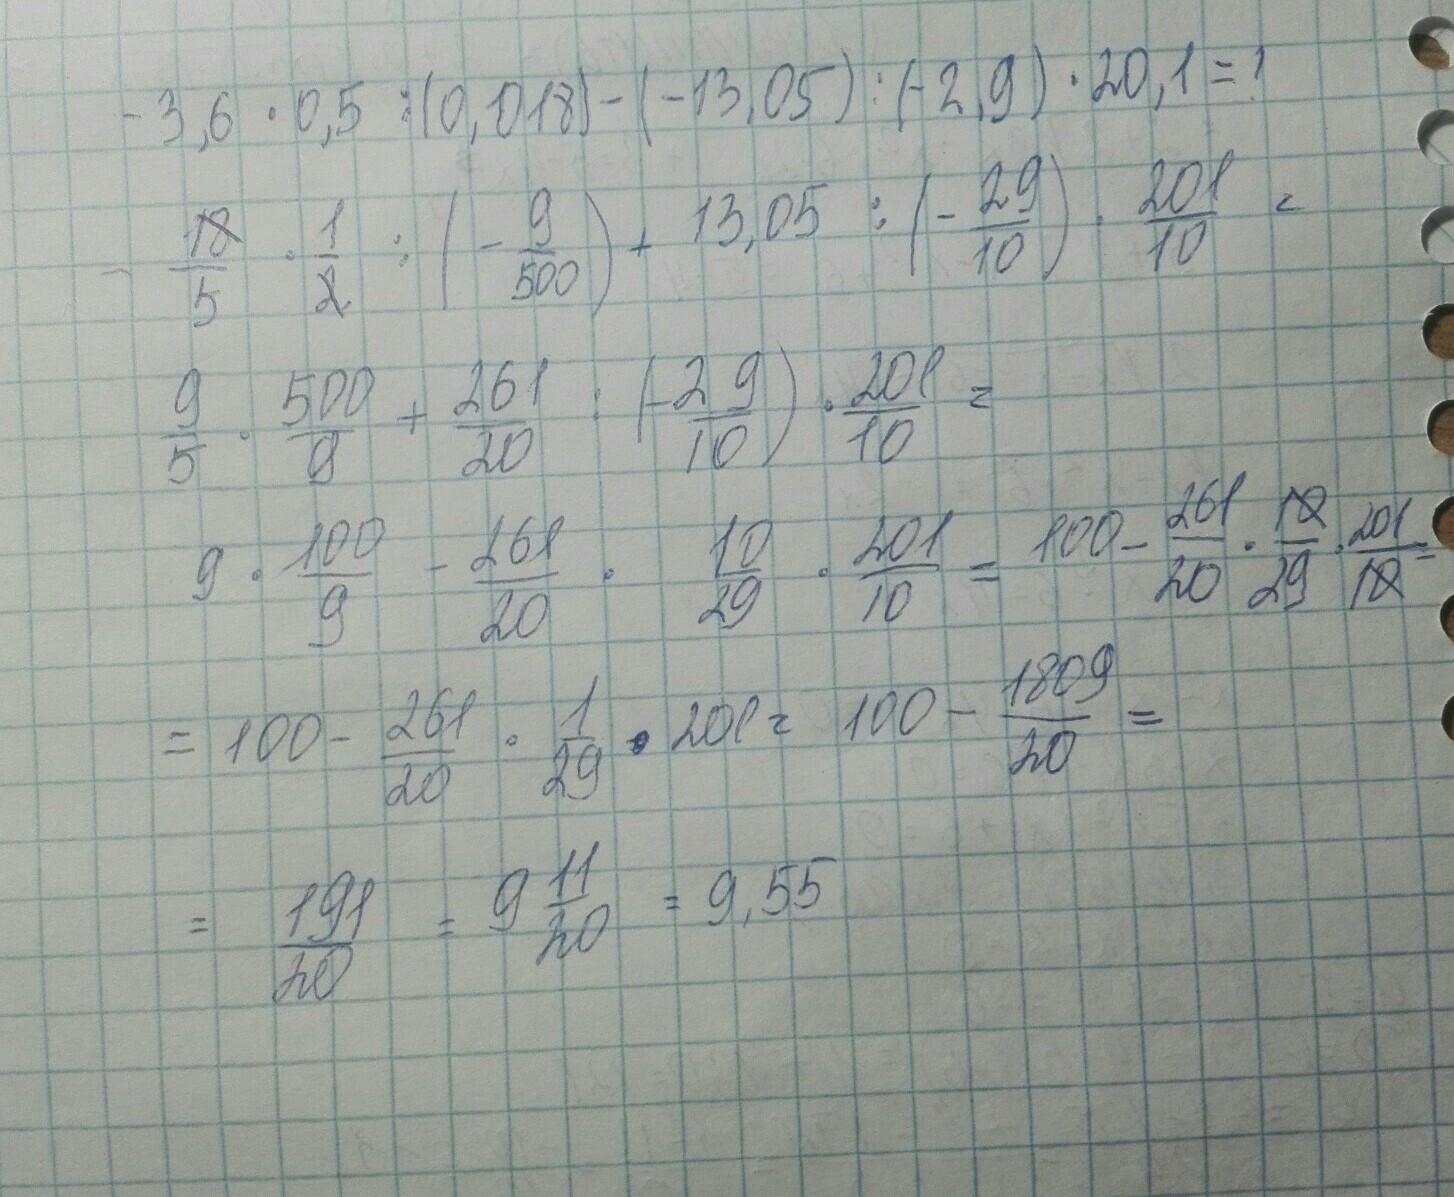 -3,6 · 0,5 : (0,018) - (-13,05) : (-2,9) · 20,1 = ?
- 18/5 · 1/2 : (- 9/500) + 13,05 : (- 29/10) · 201/10 =
9/5 · 500/9 + 261/20 : (- 29/10) · 201/10 =
9 · 100/9 - 261/20 · 10/29 · 201/10 = 100 - 261/20 · 10/29 · 201/10 =
= 100 - 261/20 · 1/29 · 201 = 100 - 1809/20 =
= 191/20 = 9 11/20 = 9,55